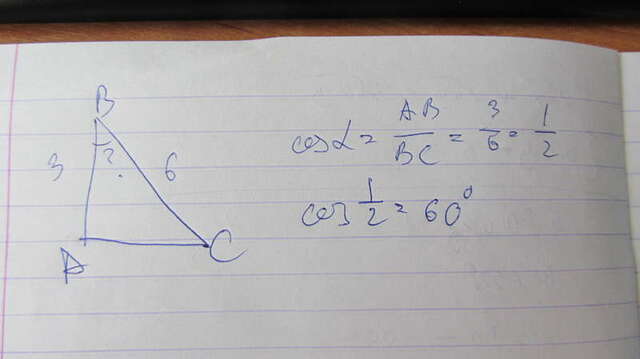 B
3 ? 6
A C
cos α = AB/BC = 3/6 = 1/2
cos 1/2 = 60°